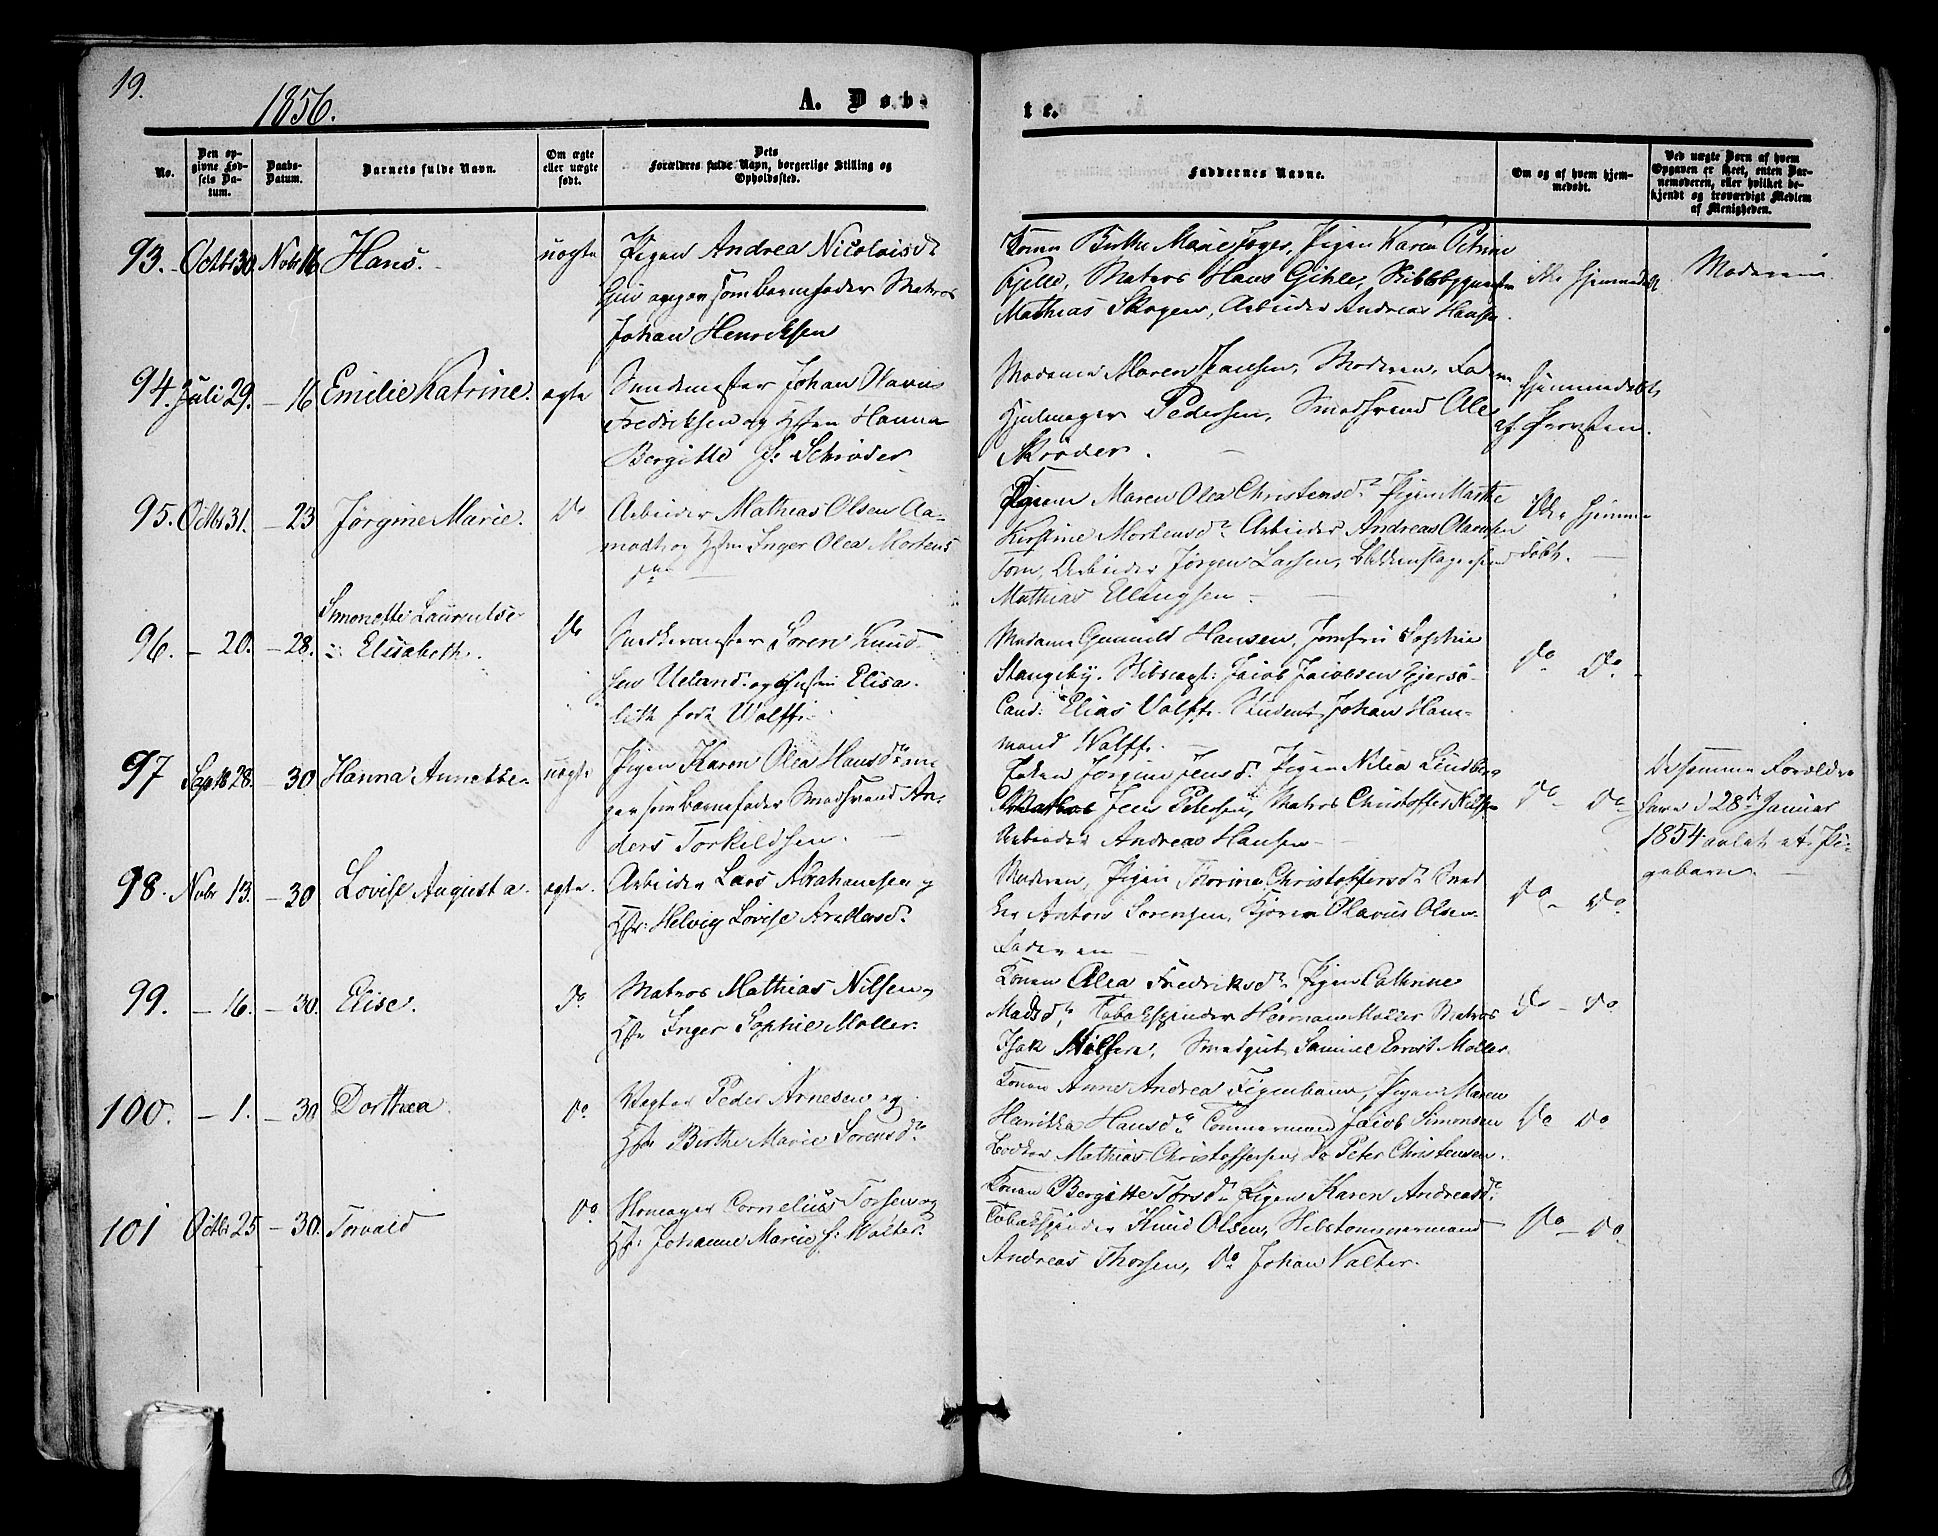 19.
1856.
A. Døb
te.
No.
Den op-
givne Fød-
sels Da-
tum.
Daabs-
Datum.
Barnets fulde Navn.
Om ægte
eller uægte
født.
Dets
Forældres fulde Navn, borgerlige Stilling og
Opholdssted.
Faddernes Navne.
Om og af hvem hjem-
medøbt.
Ved uægte Børn af hvem
Opgaven er skeet, enten Bar-
nemoderen, eller hvilket be-
kjendt og troværdigt Medlem
af Menigheden.
93. Octbr 30. Novbr 16 Hans. uægte
Pigen Andrea Nicolaisdr
som Barnefader Matros
Johan Henriksen
Konen Birthe Marie Pigen Karen Petrine
Matros Hans Gihle,
Mathias Skogen, Arbeider Andreas Hansen.
ikke hjemmedøbt
Moderen
94. Juli 29. – 16 Emilie Katrine. ægte
Johan Olavus
Fredriksen og Hstru Hanna
Bergitte f: Schrøder
Madame Maren Jansen, Moderen, Faderen
Hjulmager Pedersen, Smedsvend Ole
Skrøder.
Hjemmedøbt
af Provsten.
95. Octbr 31. – 23 Jørgine Marie. Do
Arbeider Mathias Olsen Aa-
modt og Hstru Inger Olea Mortens
Maren Olea Christensdr Pigen Marthe
Kirstine Mortensdr Arbeider Andreas Olaussen
Arbeider Jørgen Larsen, Blikkenslager
Mathias Ellingsen
Ikke hjemme
døbt.
96. – 20. – 28. Simonette Laurentse
Elisabeth. Do
Søren Knud-
sen Ueland og Hustru Elisa-
beth født Wolff
Madame Gunnild Hansen, Jomfru Sophie
Stangeby, Jacob Jacobsen
Cand: Elias Wolff, Student Johan Ham-
mond Wolff.
Do Do
97 Septbr 28. – 30 Hanna Annette. uægte
Pigen Karen Olea Hansdr an-
ger som Barnefader Smedsvend An-
ders Torkildsen.
Konen Jørgine Jensdr Pigen Nilea Lindberg
Jens Petersen, Matros Christoffer Nilsen
Arbeider Andreas Hansen
Do – Do
De samme Forældre
have d 28de Januar
1854 avlet et Pi-
gebarn.
98. Novbr 13. – 30 Lovise Augusta. ægte.
Arbeider Lars Abrahamsen og
Hstr: Helvig Lovise Arntsdr
Moderen, Pigen Thorine Christoffersdr
Anton Sørensen, Olavus Olsen
Faderen
Do – Do
99. – 16. – 30. Elise. Do
Matros Mathias Nilsen og
Hstr Inger Sophie Møller.
Konen Olea Fredriksdr Pigen Cathrine
Madsdr, Tobakspinder Herman Møller Matros
Isak Nilsen, Smedgut Samuel Ernst Møller
Do – Do
100. – 1. – 30 Dorthea. Do
Vægter Peder Arnesen og
Hstr Birthe Marie Sørensdr
Konen Anne Andrea Figenbaum, Pigen Maren
Henrikka Hansdr Tømmermand Jacob Simonsen
Bødker Mathias Christoffersen, Do Peter Christensen.
Do Do
101 Octbr 25 – 30. Torvald Do
Cornelius Torsen og
Hstr: Johanne Marie f: Walter.
Konen Bergitte Torsdr Pigen Karen Andreasdr
Tobakspinder Knud Olsen, Skibstømmermand
Andreas Thorsen, Do Johan Valter.
Do – Do